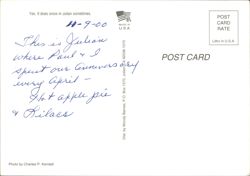 Yes, it does snow in Julian sometimes.
4-9-00
This is Julian
where Paul & I
spent our anniversary
every April -
Hot apple pie
& Lilacs
Photo by Charles P. Kendall
USA
POST CARD
POST CARD
RATE
Litho in U.S.A.